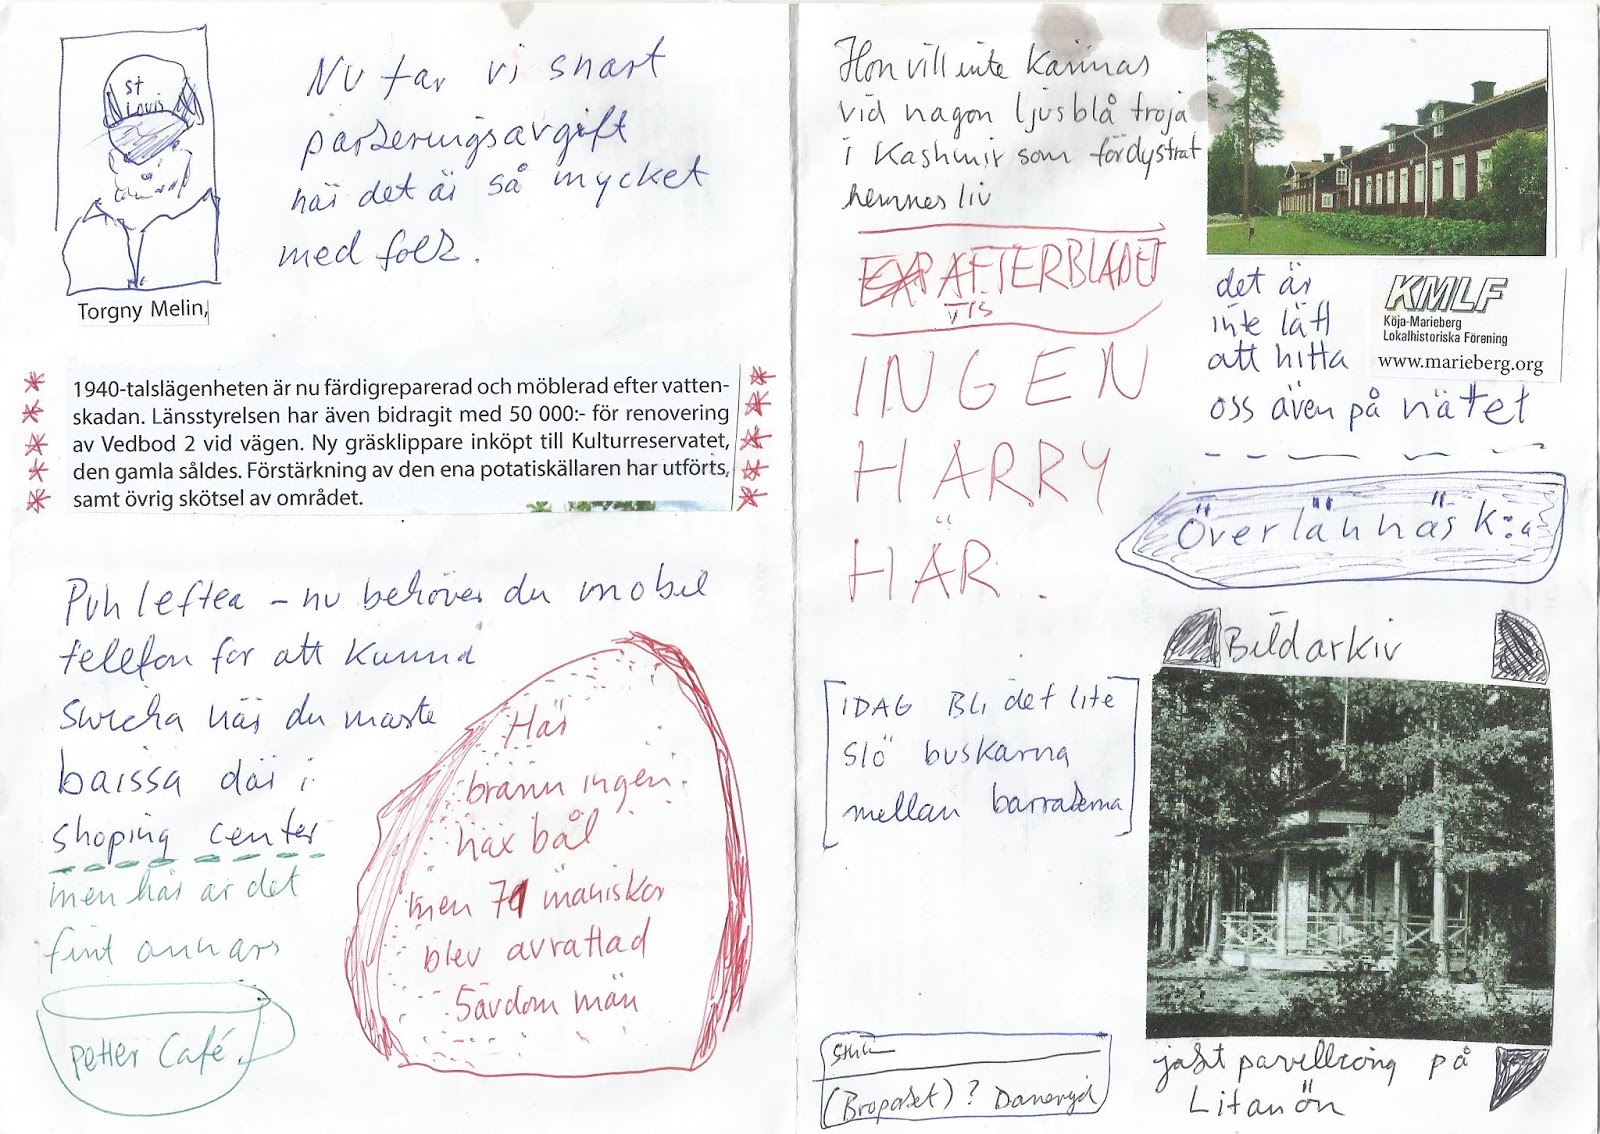 st
Louis
Torgny Melin,
Nu tar vi snart
parkeringsavgift
när det är så mycket
med folk.
1940-talslägenheten är nu färdigreparerad och möblerad efter vatten-
skadan. Länsstyrelsen har även bidragit med 50 000:- för renovering
av Vedbod 2 vid vägen. Ny gräsklippare inköpt till Kulturreservatet,
den gamla såldes. Förstärkning av den ena potatiskällaren har utförts,
samt övrig skötsel av området.
Puh leftea - nu behöver du mobil
telefon for att kunna
du maste
baissa där i
shoping center
men här är det
fint annars
petter Café.
Här
bränn ingen
häx bål
men 71 mäniskor
blev avrattad
5 av dom män
Hon vill inte kännas
vid nagon ljusblå troja
i Kashmir som fördystrat
hennes liv
EXP AFTERBLADET
VIS
INGEN
HARRY
HÄR.
det är
inte lätt
att hitta
oss även på nätet
KMLF
Köja-Marieberg
Lokalhistoriska Förening
www.marieberg.org
Överlännäs K:a
Bildarkiv
IDAG Bli det lite
slö buskarna
mellan barrakerna
jakt pavellrong på
Litanön
(Broparket)? Daneryd